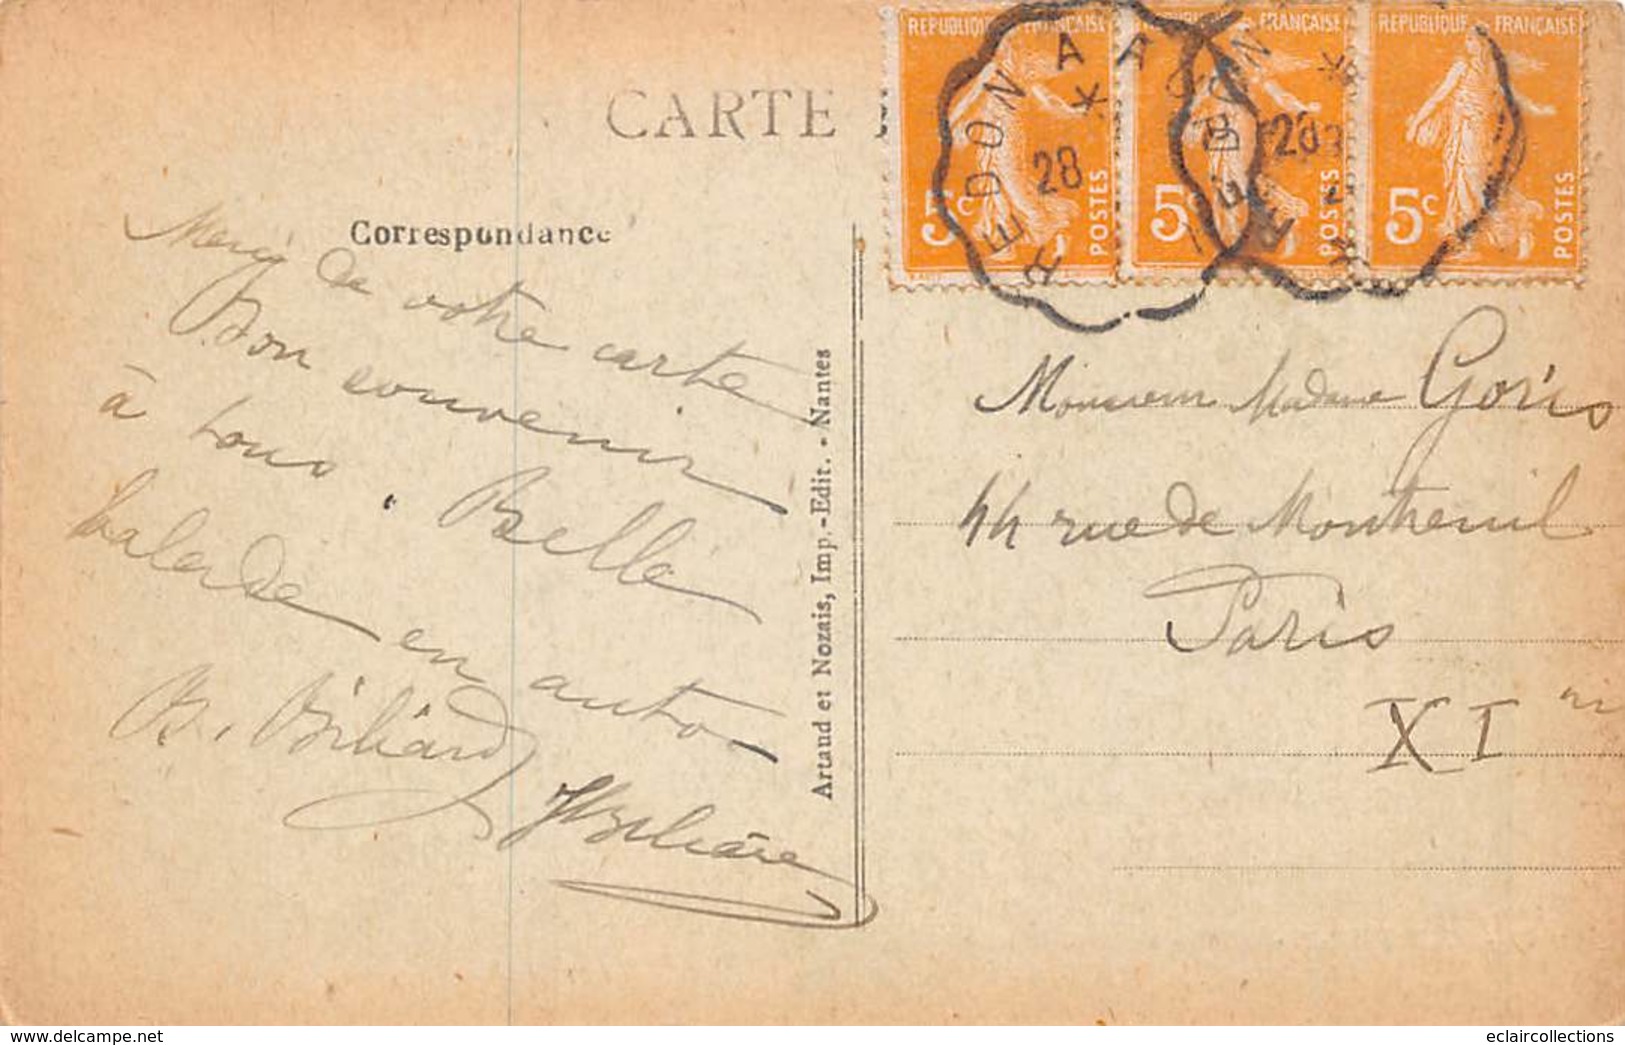 CARTE
Correspondance
REPUBLIQUE FRANÇAISE
REPUBLIQUE FRANÇAISE
REPUBLIQUE FRANÇAISE
5c POSTES
5c POSTES
5c POSTES
REDON A
28
REDON
28
Merci de votre carte
Bon souvenir
à tous. Belle
balade en auto
B. Biliard
Artaud et Nozais, Imp.-Edit. - Nantes
Monsieur Madame Goris
44 rue de Montreuil
Paris
XI
delcampe.net
eclaircollections